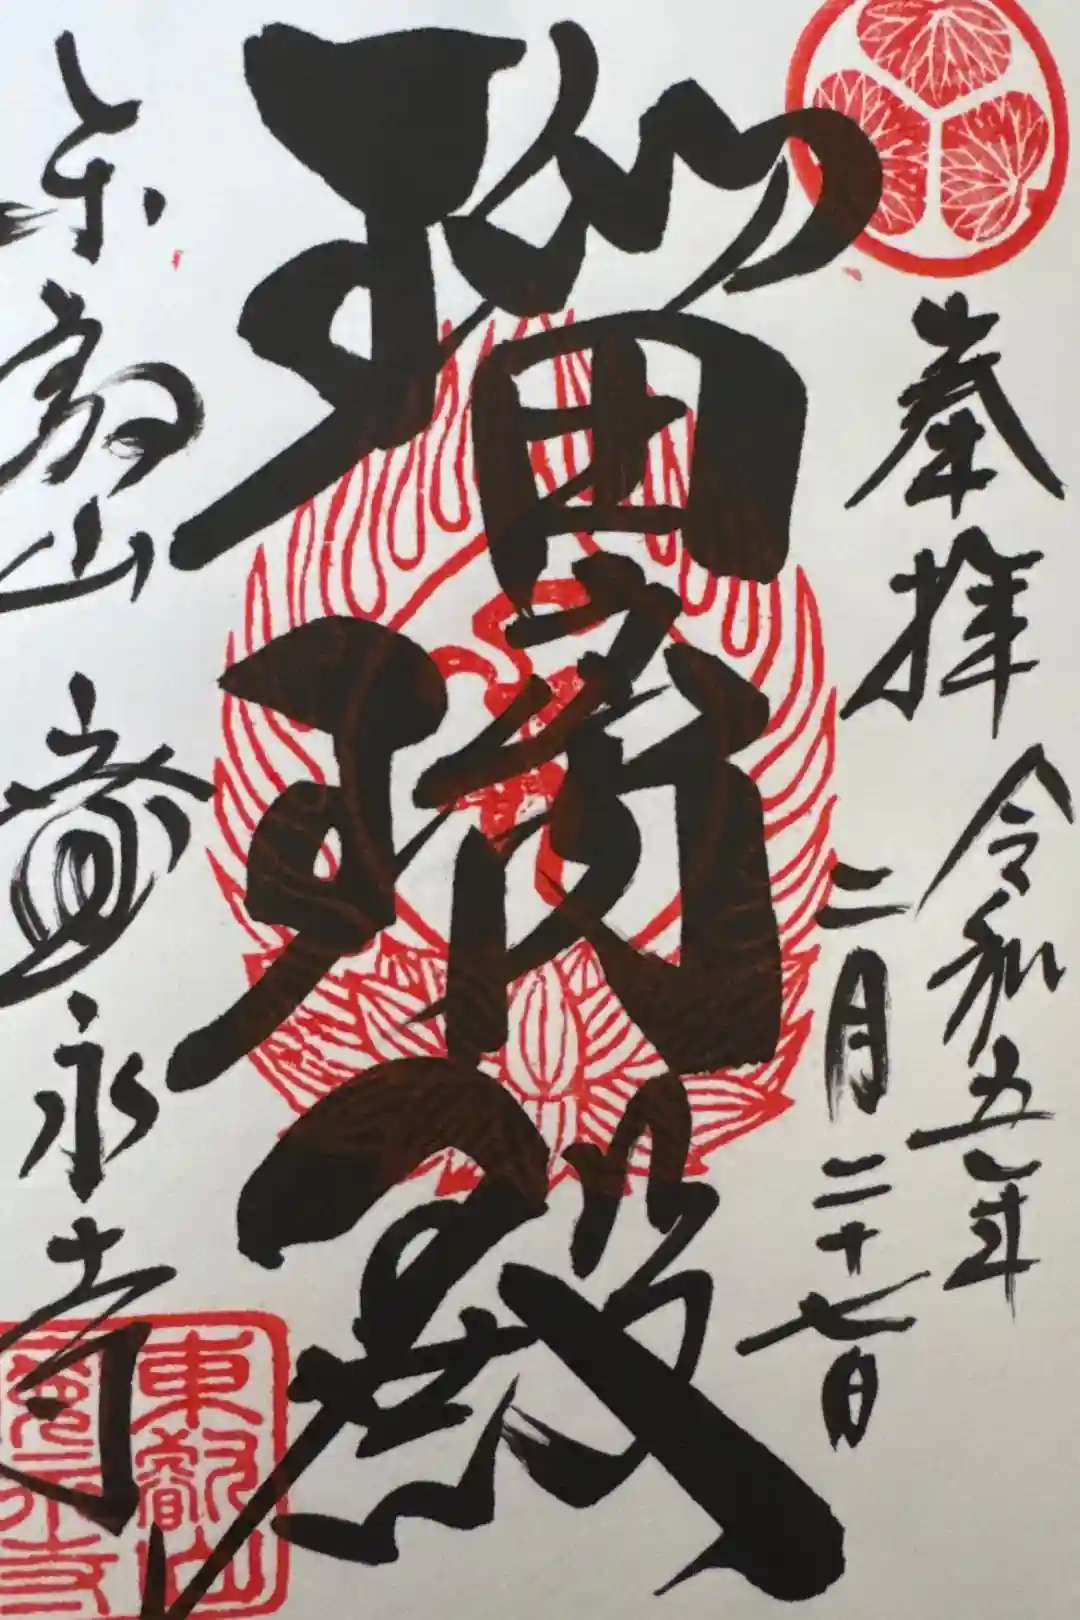 奉拝
令和五年
二月二十七日
瑠璃殿
東叡山
寛永寺
東叡山
寛永寺